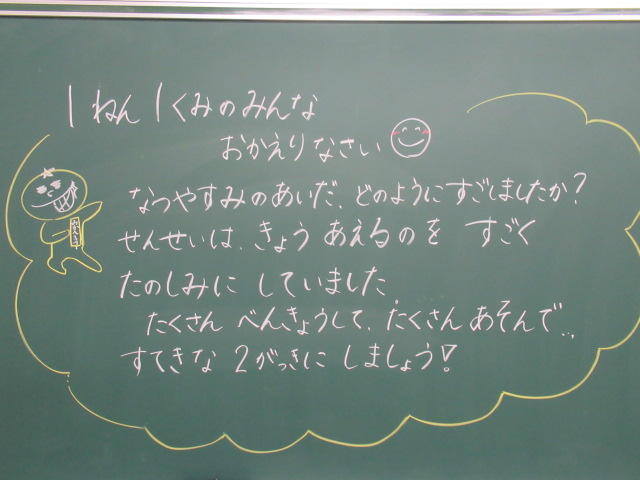 1ねん1くみのみんな
おかえりなさい
なつやすみのあいだ、どのようにすごしましたか?
せんせいは、きょう あえるのを すごく
たのしみに していました。
たくさん べんきょうして、たくさん あそんで...
すてきな 2がっきに しましょう!